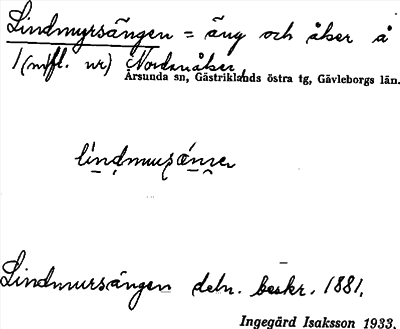 Lindmyrsängen = äng och åker å
1 (mfl. nr) Nordanåker,
Årsunda sn, Gästriklands östra tg, Gävleborgs län.
Lindmursängen deln. beskr. 1881.
Ingegärd Isaksson 1933.